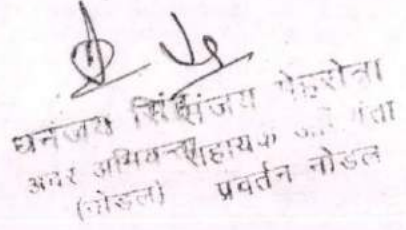 धनंजय सिंह संजय मेहरोत्रा
अवर अभियन्ता सहायक अभियंता
(नोडल) प्रवर्तन नोडल